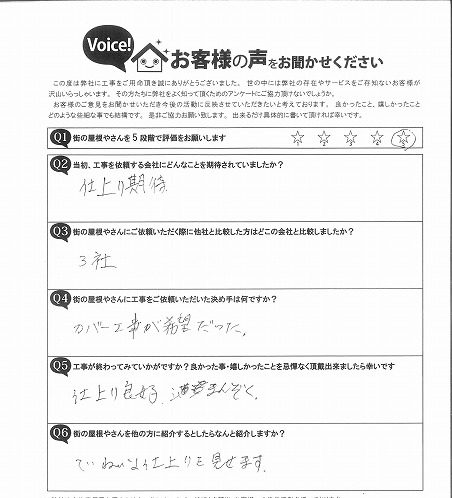 Voice!
お客様の声をお聞かせください
この度は弊社に工事をご用命頂き誠にありがとうございました。 世の中には弊社の存在やサービスをご存知ないお客様が
沢山いらっしゃいます。 その方たちに弊社をよく知って頂くためのアンケートにご協力頂けないでしょうか。
お客様のご意見をお聞かせいただき今後の活動に反映させていただきたいと考えております。 良かったこと、嬉しかったこと
どのような些細な事でも結構です。 是非ご協力お願い致します。 出来るだけ具体的に書いて頂ければ幸いです。
Q1 街の屋根やさんを5段階で評価をお願いします ☆ ☆ ☆ ☆ ☆
Q2 当初、工事を依頼する会社にどんなことを期待されていましたか?
仕上り期待
Q3 街の屋根やさんにご依頼いただく際に他社と比較した方はどこの会社と比較しましたか?
3社
Q4 街の屋根やさんに工事をご依頼いただいた決め手は何ですか?
カバー工事が希望だった。
Q5 工事が終わってみていかがですか?良かった事・嬉しかったことを忌憚なく頂戴出来ましたら幸いです
仕上り良好 まんぞく。
Q6 街の屋根やさんを他の方に紹介するとしたらなんと紹介しますか?
ていねいな仕上りを見せます。